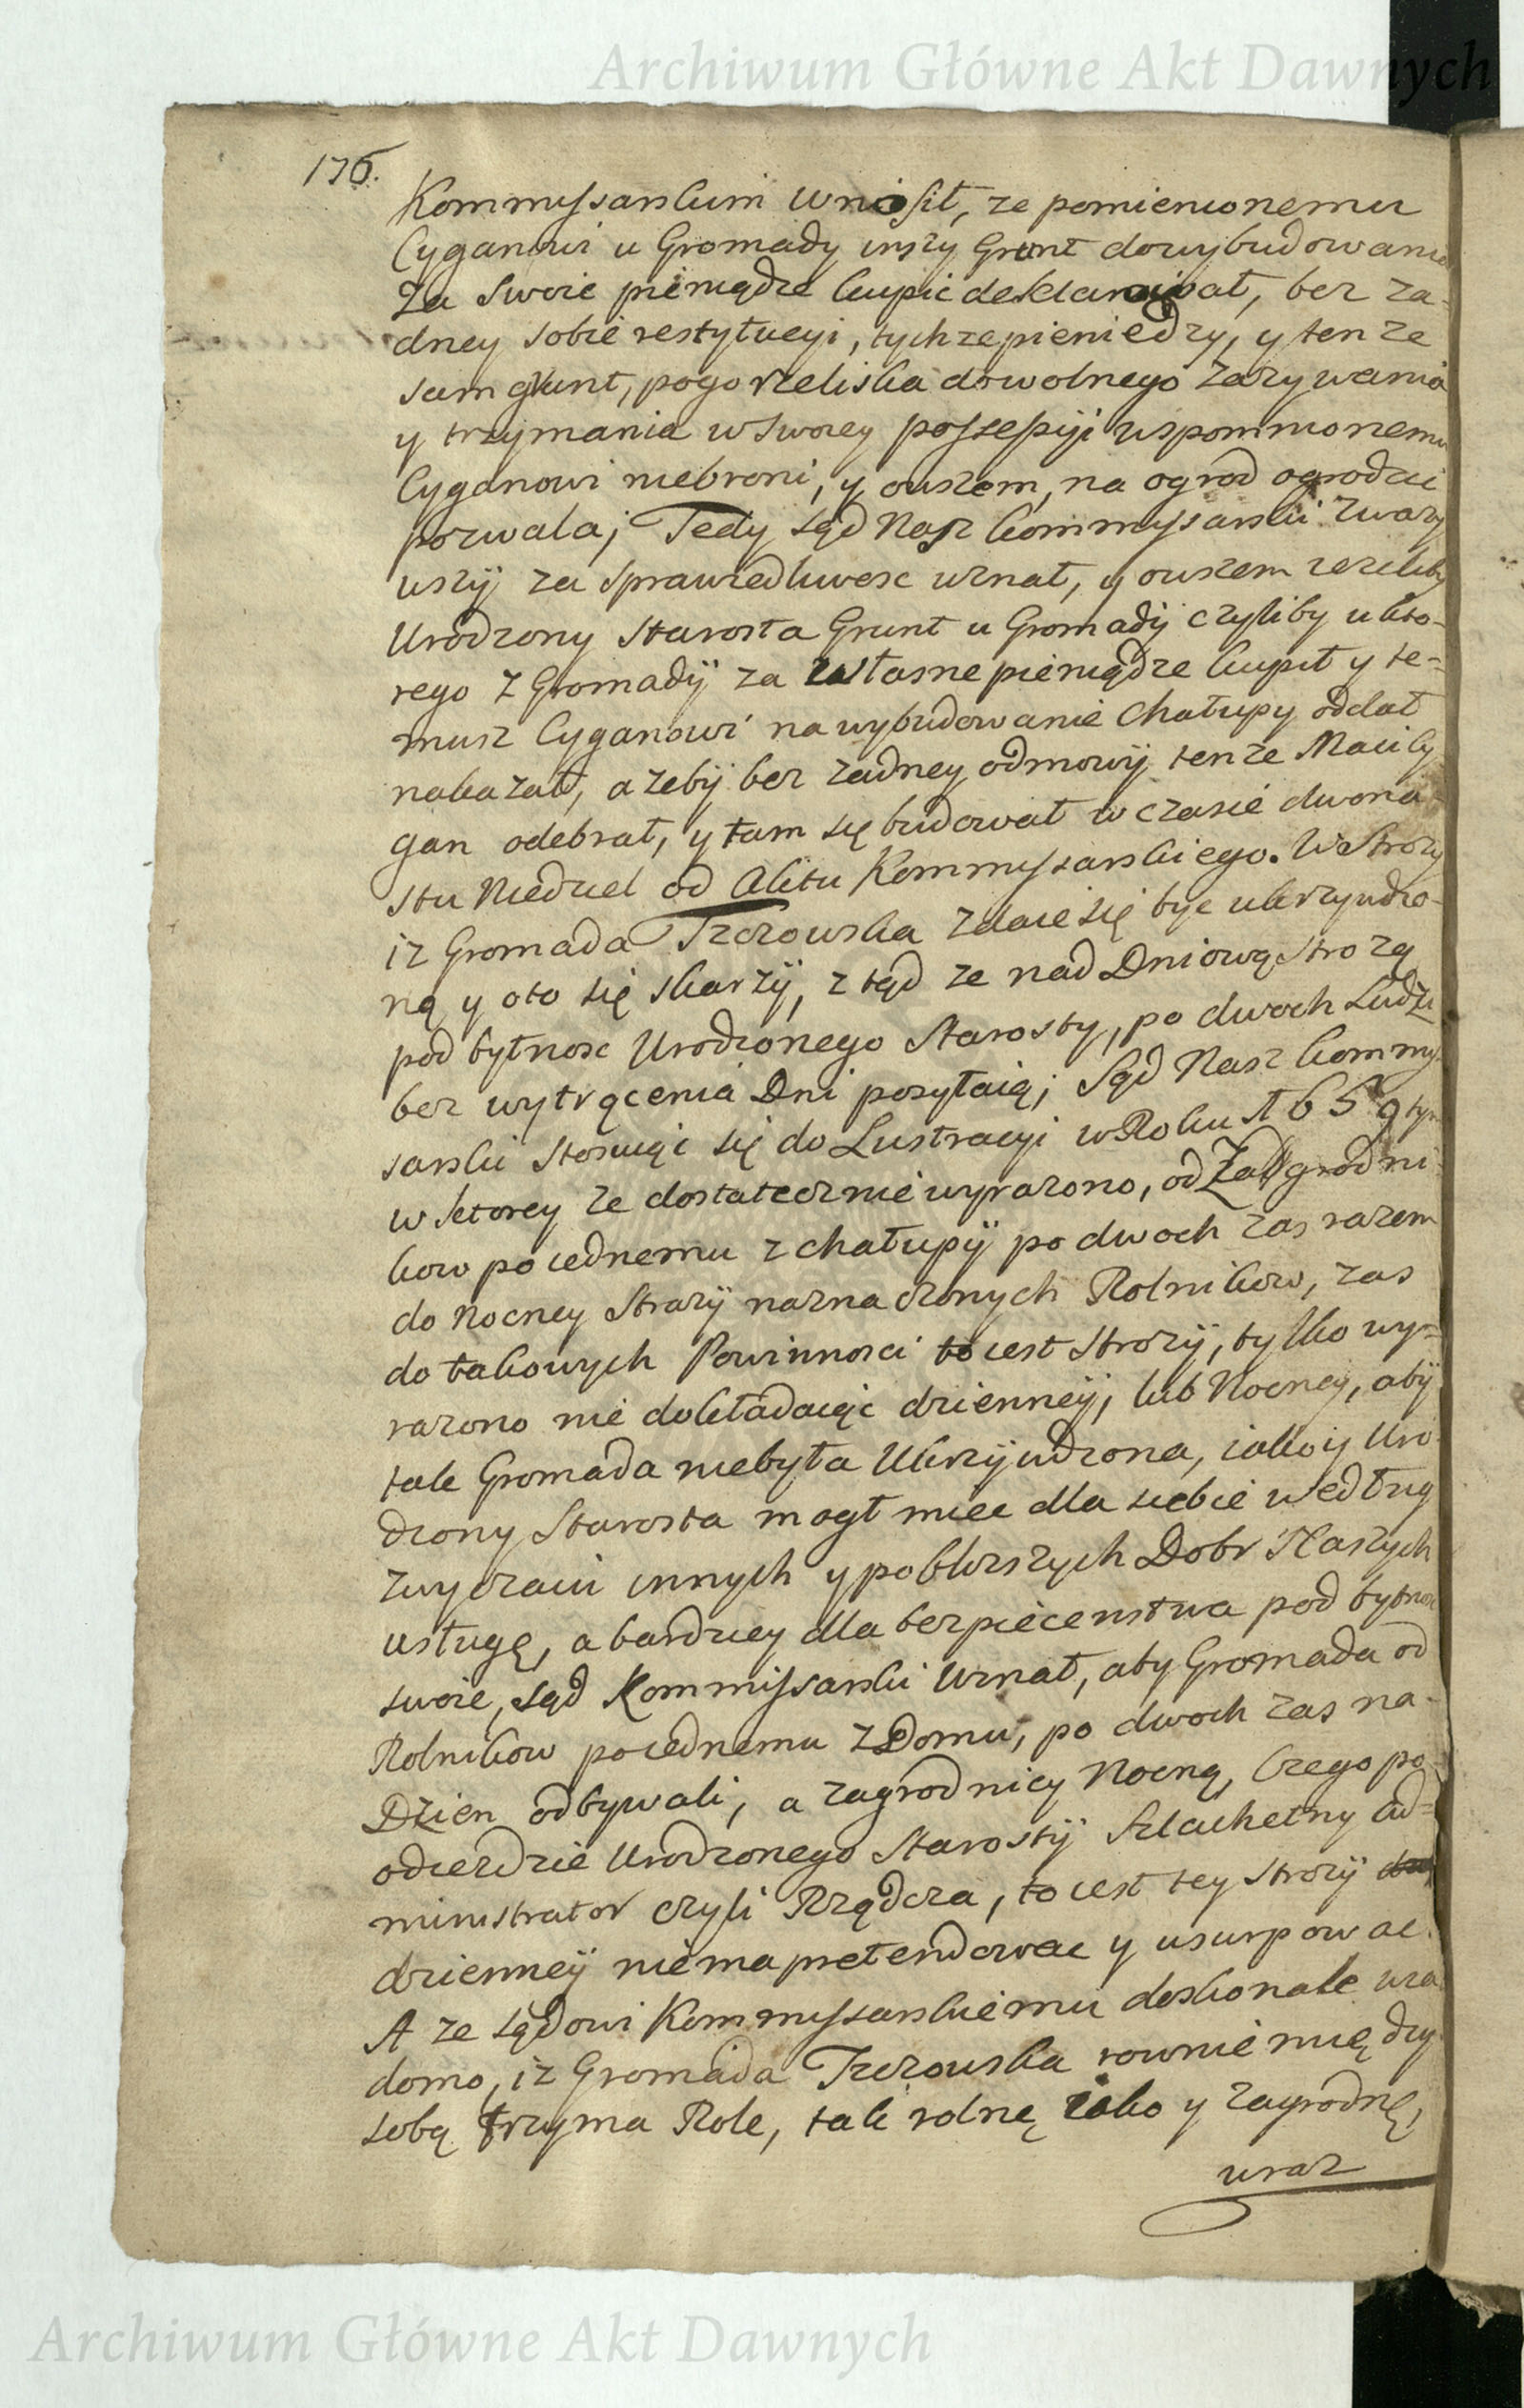 Archiwum Główne Akt Dawnych
176.
Kommyssarskim wniosił, ze pomienionemu
Cyganowi u Gromady inszy Grunt do wybudowania
Za Swoie pieniądze kupic deklarował, bez za-
dney sobie restytucyi, tychze pieniedzy, y ten ze
sam grunt, pogorzeliska dowolnego Zazywania
y trzymania w Swoiey possessyji wspomnionemu
Cyganowi niebroni, y owszem, na ogrod ogrodzic
pozwala; Tedy Sąd Nasz kommyssarski zwazy
wszÿ za Sprawiedliwosc uznał, y owszem zezeliby
Urodzony Starosta Grunt u Gromadÿ czyliby u kto-
rego z Gromadÿ za własne pieniądze kupił y te-
musz Cyganowi na wybudowanie Chałupy oddał
nakazał, azebÿ bez zadney odmowÿ tenze Maci Cy
gan odebrał, y tam się budował w czasie dwona-
stu Niedziel od Aktu Kommyssarskiego. W Strozy
iz Gromada Trzczowska zdaie się byc ukrzywdzo-
ną y oto się skarzÿ, ztąd ze nad Dniową Strozą
pod bytnosc Urodzonego Starosty, po dwoch Ludzi
bez wytrącenia Dni posyłaią; Sąd Nasz kommy-
sarski Stosuiąc się do Lustracyi w Roku 1659 tym
w ktorey ze dostatecznie wyrazono, od Zagrodni-
kow po iednemu z chałupÿ po dwoch zas razem
do Nocney Strazÿ naznaczonych Rolnikow, zas
do takowych Powinnosci to iest Strozÿ, tylko wy-
razono nie dokładaiąc dziennëÿ, lub Nocneÿ, abÿ
tak Gromada niebyła Ukrzÿwdzona, iako ÿ Uro-
dzony Starosta mogł miec dla siebie według
zwyczaiu innych y poblizszych Dobr Naszych
usługę, a bardziey dla bezpieczenstwa pod bytnosc
swoie, Sąd Kommissarski Uznał, aby Gromada od
Rolnikow po iednemu z Domu, po dwoch zas na-
Dzien odbywali, a zagrodnicy Nocną, Czego po-
odiezdzie Urodzonego Starostÿ Szlachetny Ad-
ministrator czyli Rządcza, to iest tey Strozÿ
dzienneÿ niema pretendowac y usurpowac.
A ze Sądowi Kommyssarskiemu doskonale wia
domo, iz Gromada Trzczowska rownie między
sobą trzyma Role, tak rolnę iako y zagrodnę,
uraz
Archiwum Główne Akt Dawnych